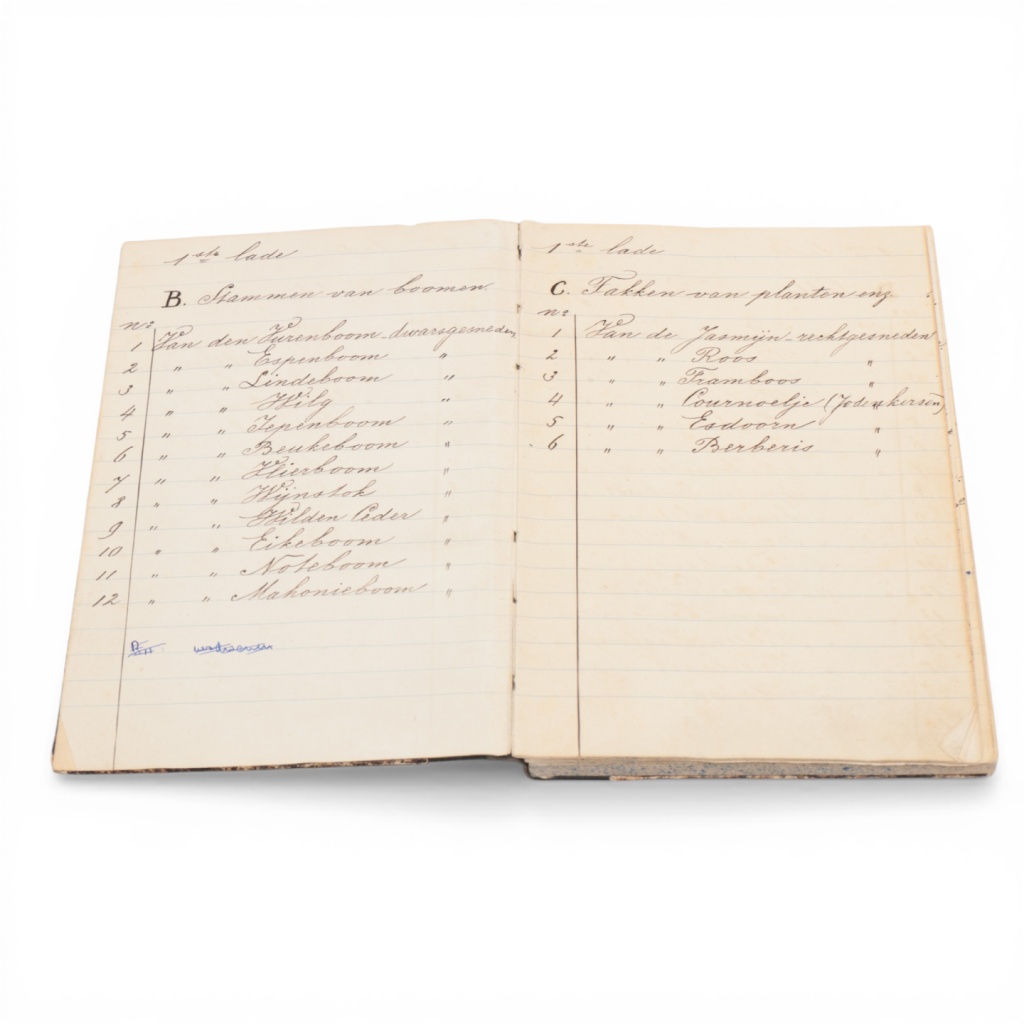 1ste lade
B. Stammen van boomen.
No
1 Van den Vurenboom - dwarsgesneden
2 " " Espenboom "
3 " " Lindeboom "
4 " " Wilg "
5 " " Iepenboom "
6 " " Beukeboom "
7 " " Vlierboom "
8 " " Wijnstok "
9 " " Wilden Ceder "
10 " " Eikeboom "
11 " " Noteboom "
12 " " Mahonieboom "
1ste lade
C. Takken van planten enz.
No
1 Van de Jasmijn - rechtgesneden
2 " " Roos "
3 " " Framboos "
4 " " Cournoelje (Jodenkersen) "
5 " " Esdoorn "
6 " " Berberis "